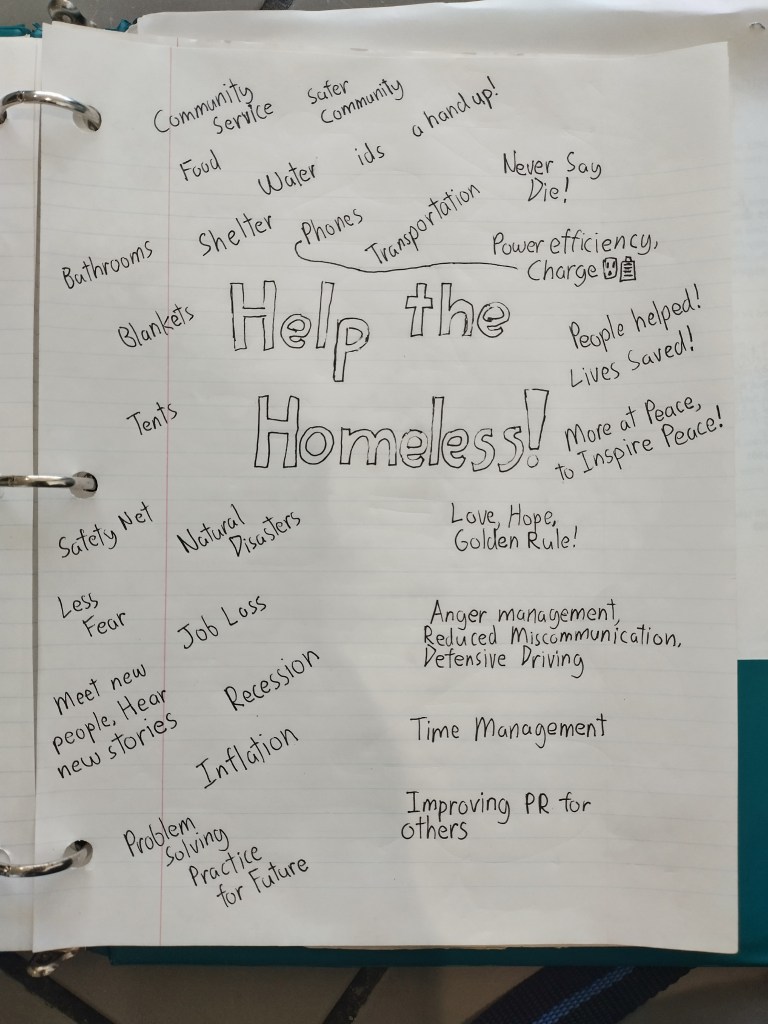 Community
Service
Safer
Community
a hand up!
Food
Water
ids
Never Say
Die!
Bathrooms
Shelter
Phones
Transportation
Power efficiency,
Charge
Blankets
Help the
Homeless!
People helped!
Lives Saved!
Tents
More at Peace,
to Inspire Peace!
Safety Net
Natural
Disasters
Love, Hope,
Golden Rule!
Less
Fear
Job Loss
Anger management,
Reduced Miscommunication,
Defensive Driving
Meet new
people, Hear
new stories
Recession
Inflation
Time Management
Problem
Solving
Practice
for Future
Improving PR for
others